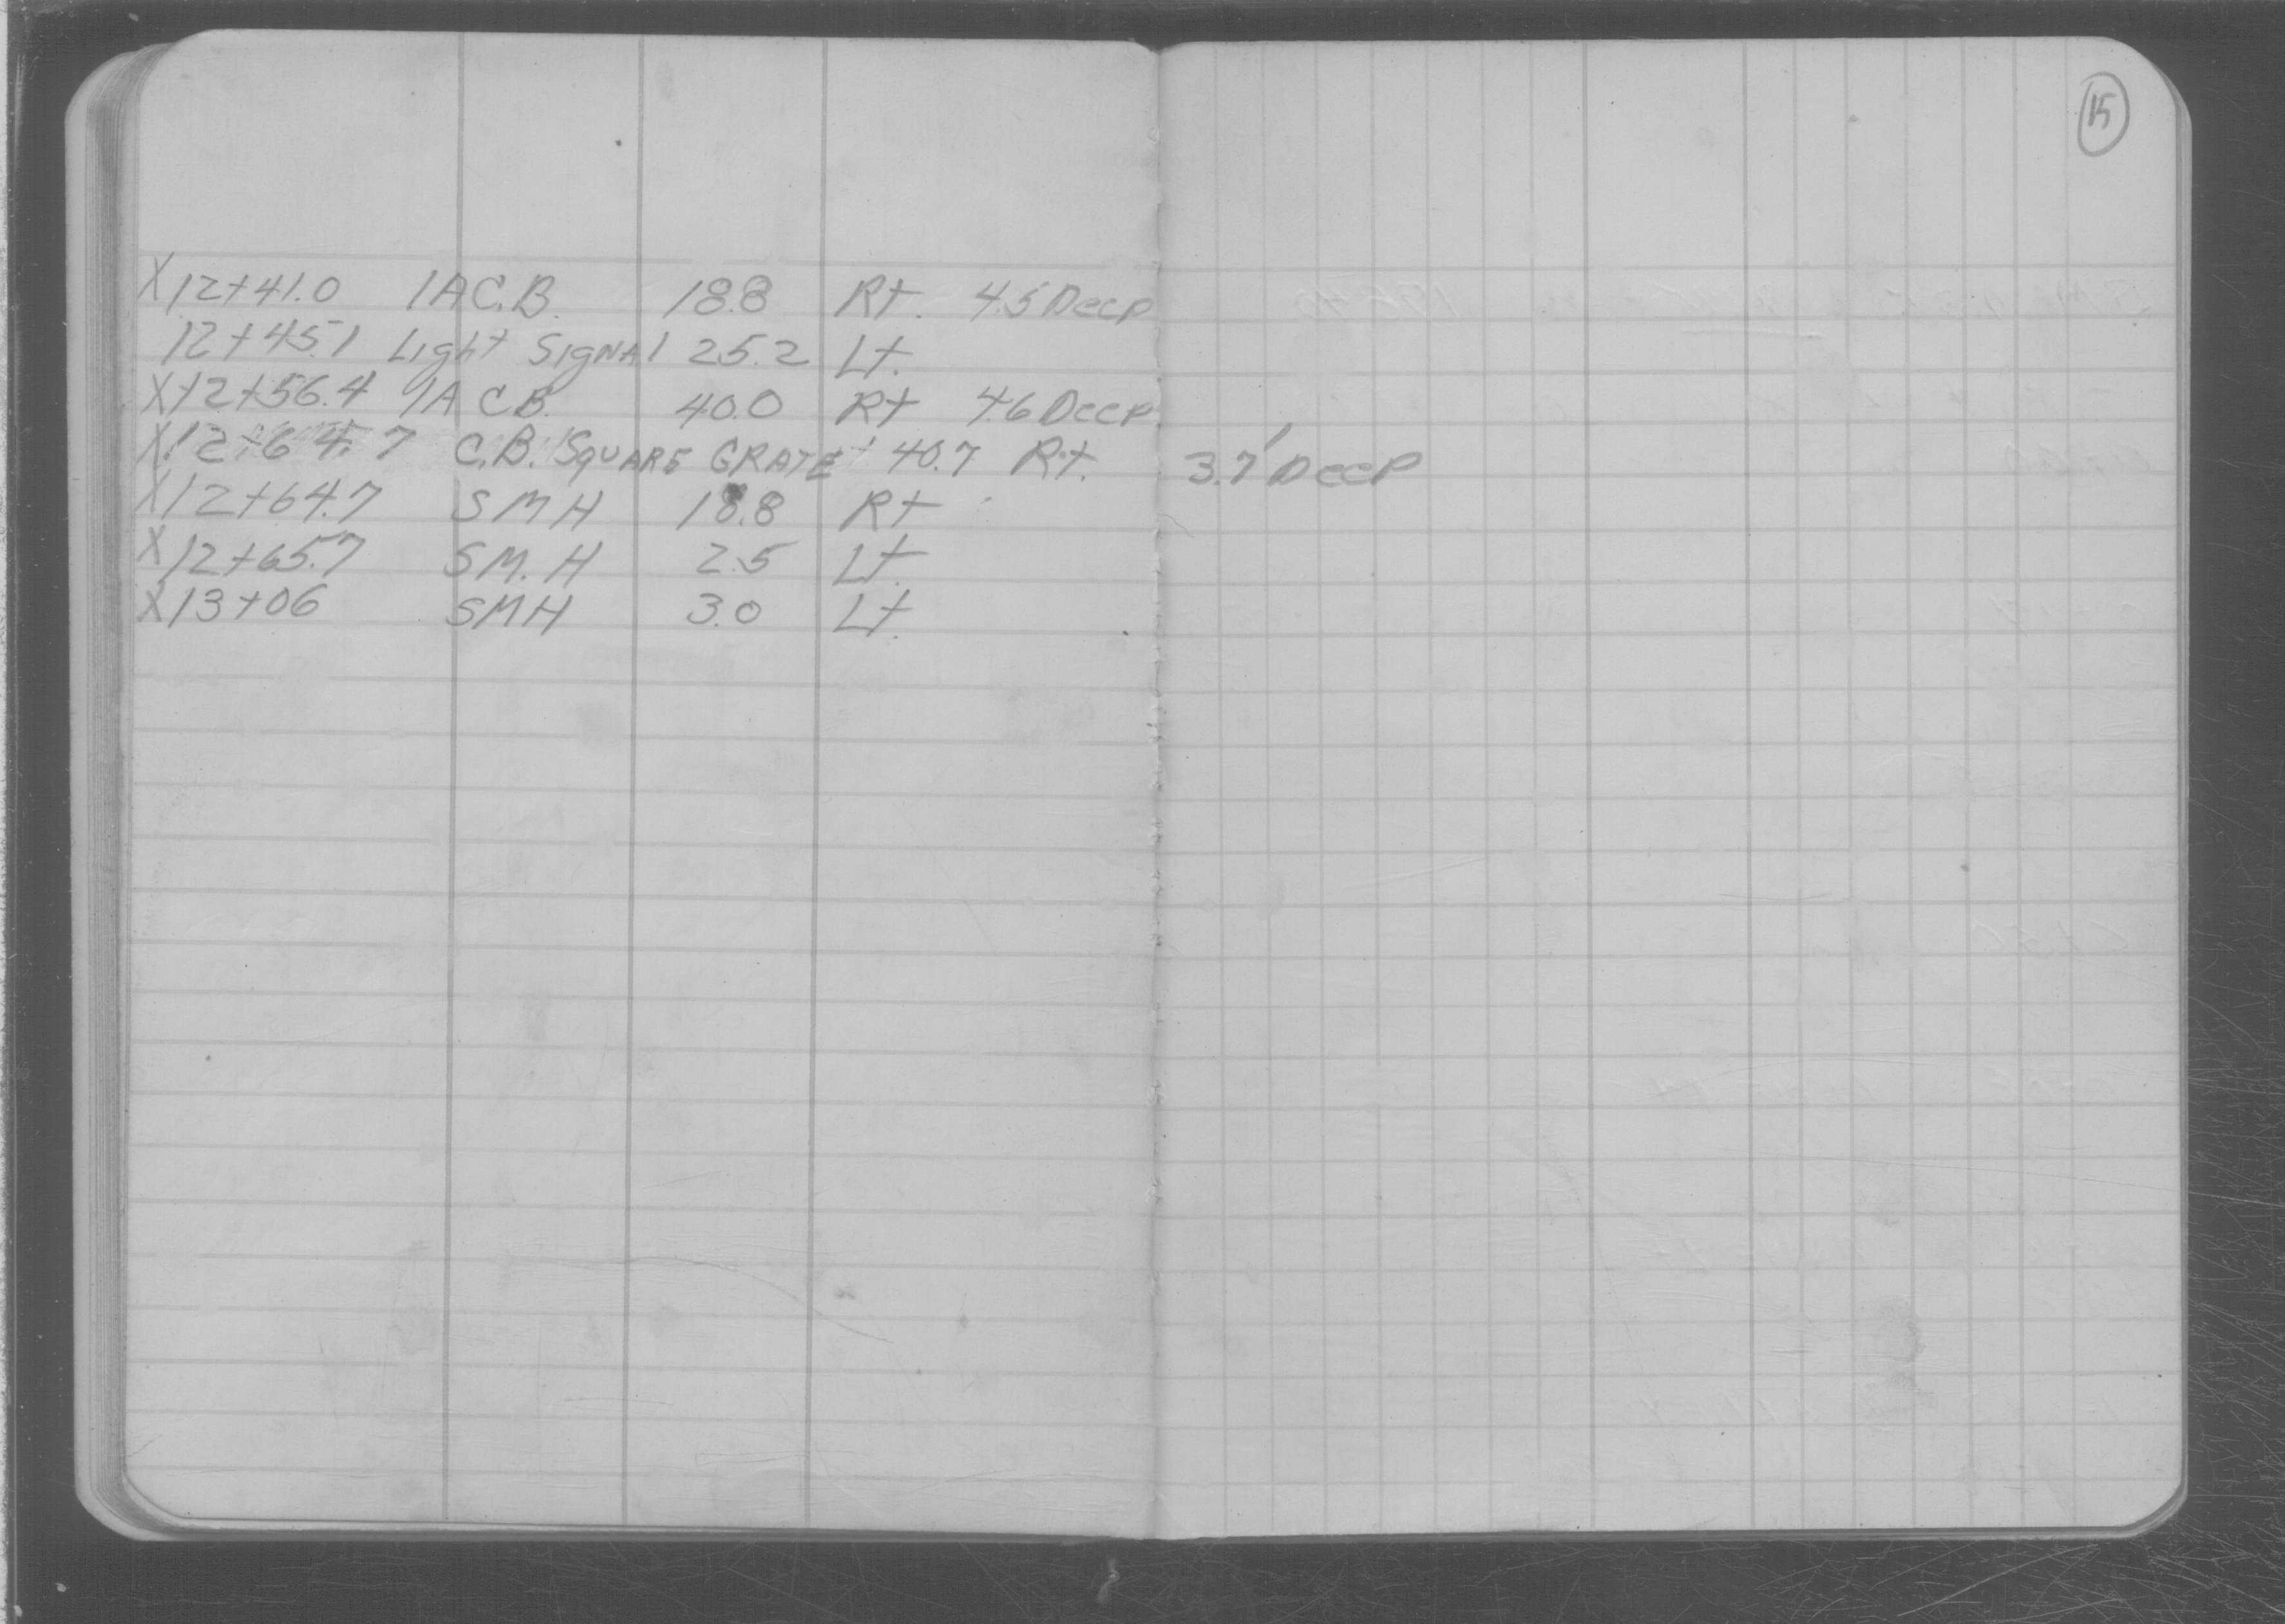 15
X 12+41.0 1A C.B. 18.8 Rt. 4.5' Deep
12+45.1 Light Signal 25.2 Lt.
X 12+56.4 1A C.B. 40.0 Rt 4.6 Deep
X 12+64.7 C.B. Square GRATE 40.7 Rt. 3.7' Deep
X 12+64.7 SMH 18.8 Rt
X 12+65.7 SM.H 2.5 Lt.
X 13+06 SMH 3.0 Lt.